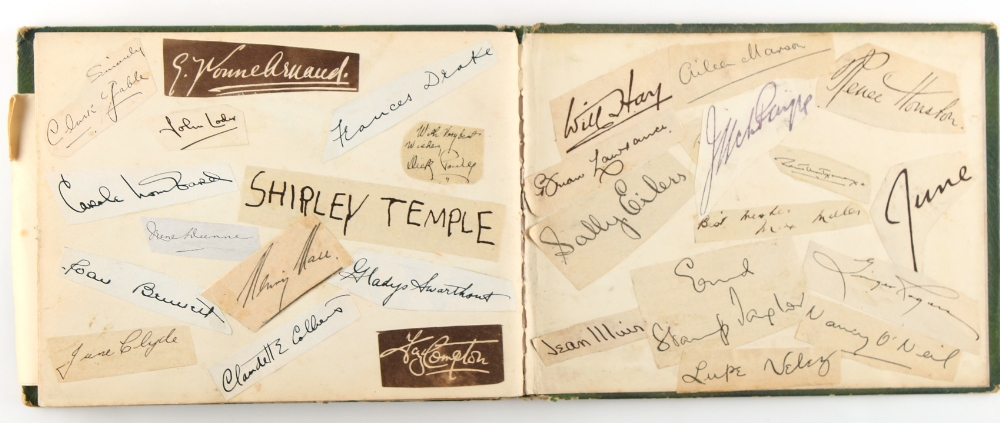 Sincerely
Clark Gable
G. Yvonne Arnaud.
Frances Drake
John Loder
With my best
Wishes,
Dick
Carole Lombard
SHIRLEY TEMPLE
Irene Dunne
Joan Bennett
Gladys Swarthout
June Clyde
Claudette Colbert
Fay Compton
Will Hay
Aileen Marson
Renee Houston.
Lawrance.
Sally Eilers
June
Best wishes
Max Miller
Enid
Stamp Taylor
Ginger Rogers
Jean Muir
Nancy O'Neil
Lupe Velez